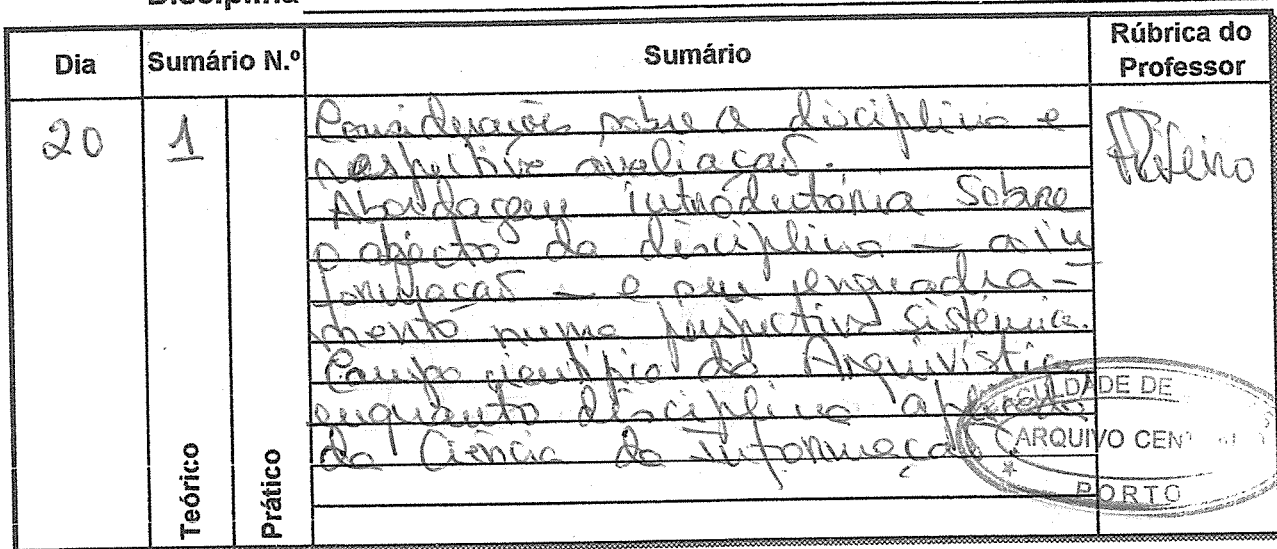 Disciplina
Dia
Sumário N.º
Sumário
Rúbrica do
Professor
20
1
Considerações sobre a disciplina e
respectiva avaliação.
Abordagem introdutória sobre
o objecto da disciplina — a in
formação — e seu enquadra-
mento numa perspectiva sistémica.
Campo científico da Arquivística
enquanto disciplina aplicada
da Ciência da Informação.
Teórico
Prático
DADE DE
ARQUIVO CENT
PORTO